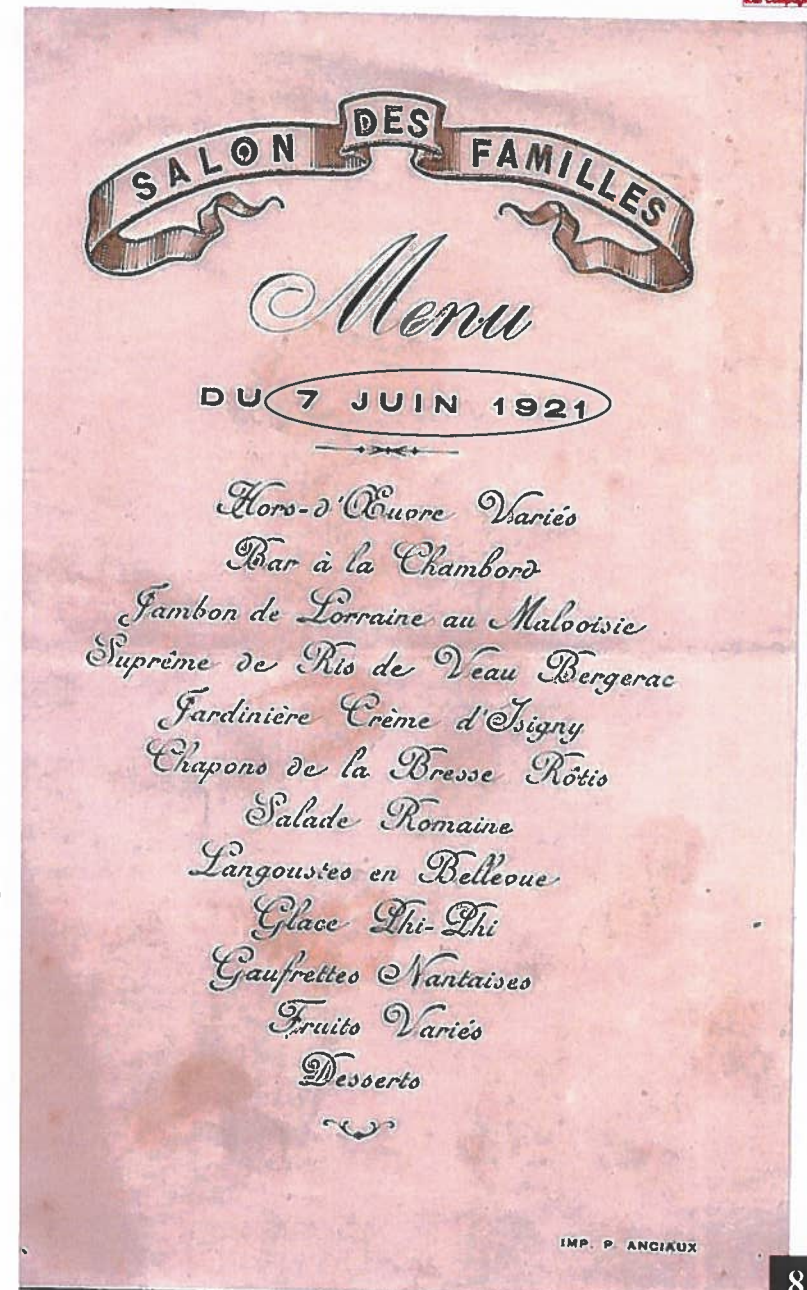 SALON DES FAMILLES
Menu
DU 7 JUIN 1921
Hors-d'Œuvre Variés
Bar à la Chambord
Jambon de Lorraine au Malvoisie
Suprême de Ris de Veau Bergerac
Jardinière Crème d'Isigny
Chapons de la Bresse Rôtis
Salade Romaine
Langoustes en Bellevue
Glace Phi-Phi
Gaufrettes Nantaises
Fruits Variés
Desserts
IMP. P. ANCIAUX
8